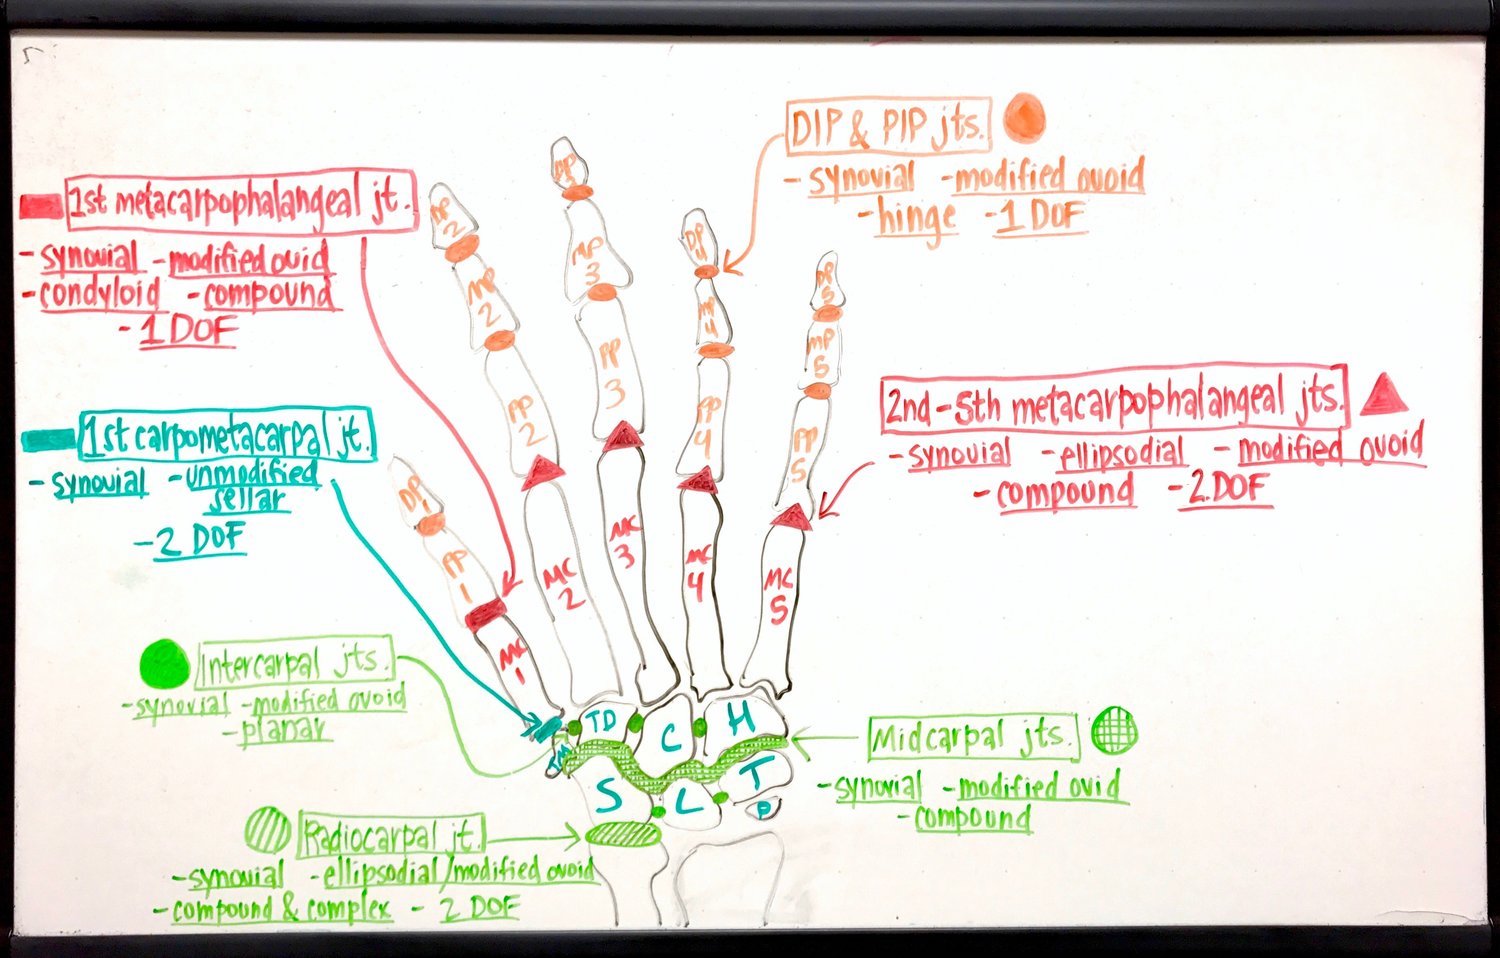 DIP & PIP jts.
- synovial - modified ovoid
- hinge - 1 DOF
1st metacarpophalangeal jt.
- synovial - modified ovid
- condyloid - compound
- 1 DOF
2nd - 5th metacarpophalangeal jts.
- synovial - ellipsodial - modified ovoid
- compound - 2 DOF
1st carpometacarpal jt.
- synovial - unmodified
sellar
- 2 DOF
Intercarpal jts.
- synovial - modified ovoid
- planar
Midcarpal jts.
- synovial - modified ovid
- compound
Radiocarpal jt.
- synovial - ellipsodial/modified ovoid
- compound & complex - 2 DOF
DP
1
PP
1
MC
1
DP
2
MP
2
PP
2
MC
2
DP
3
MP
3
PP
3
MC
3
DP
4
MP
4
PP
4
MC
4
DP
5
MP
5
PP
5
MC
5
TD
C
H
TM
S
L
T
P